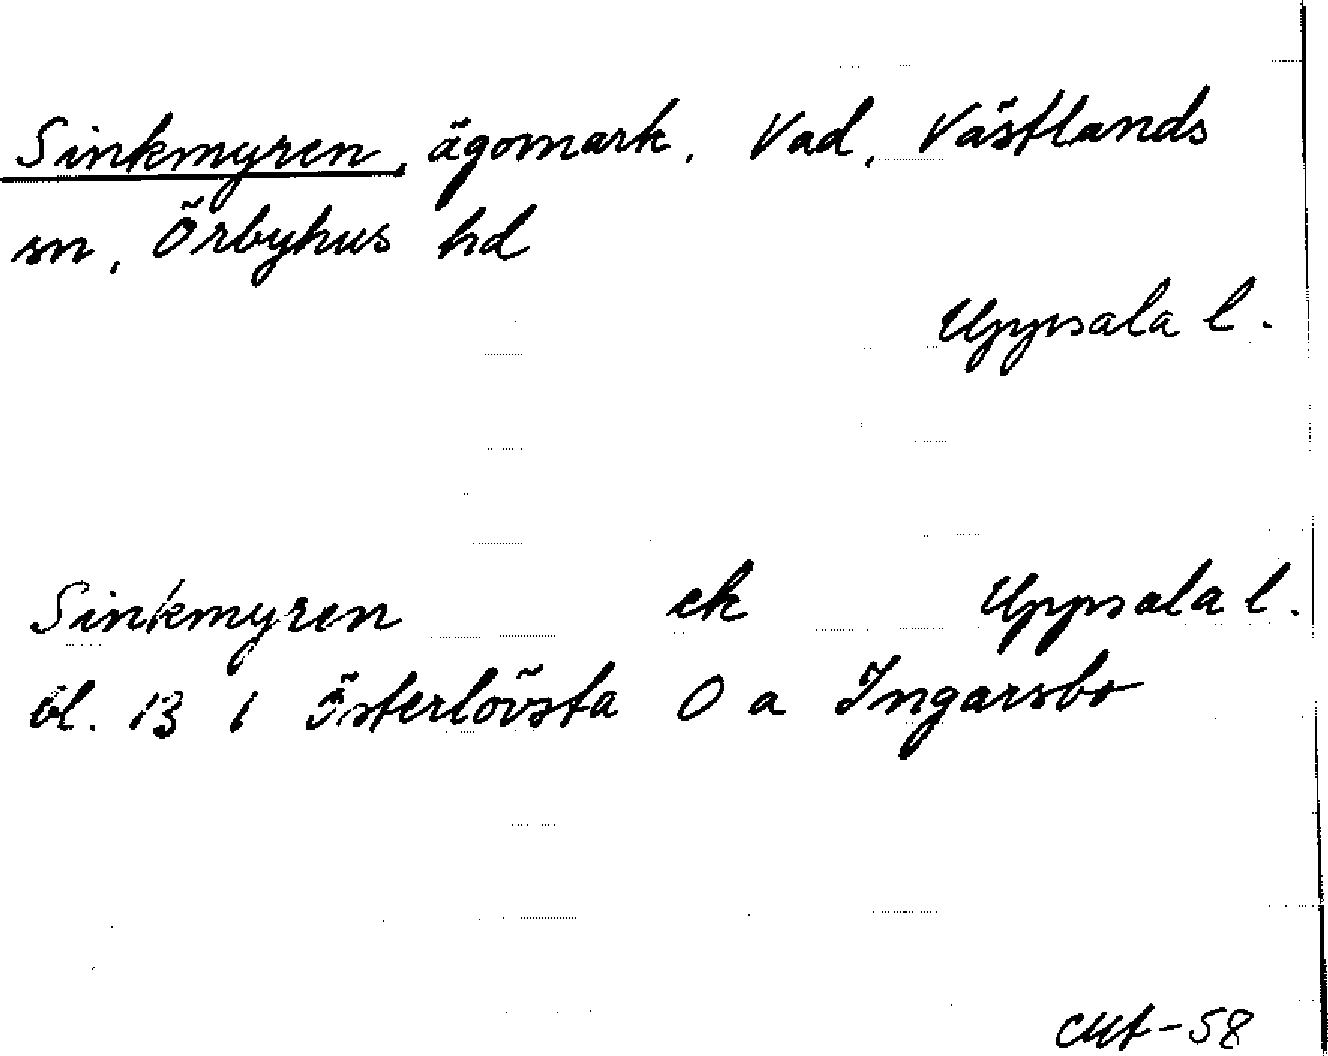 Sinkmyren, ägomark. Vad, Västlands
sn, Örbyhus hd
Uppsala l.
Sinkmyren ek Uppsala l.
bl. 13 i Österlövsta O a Ingarsbo